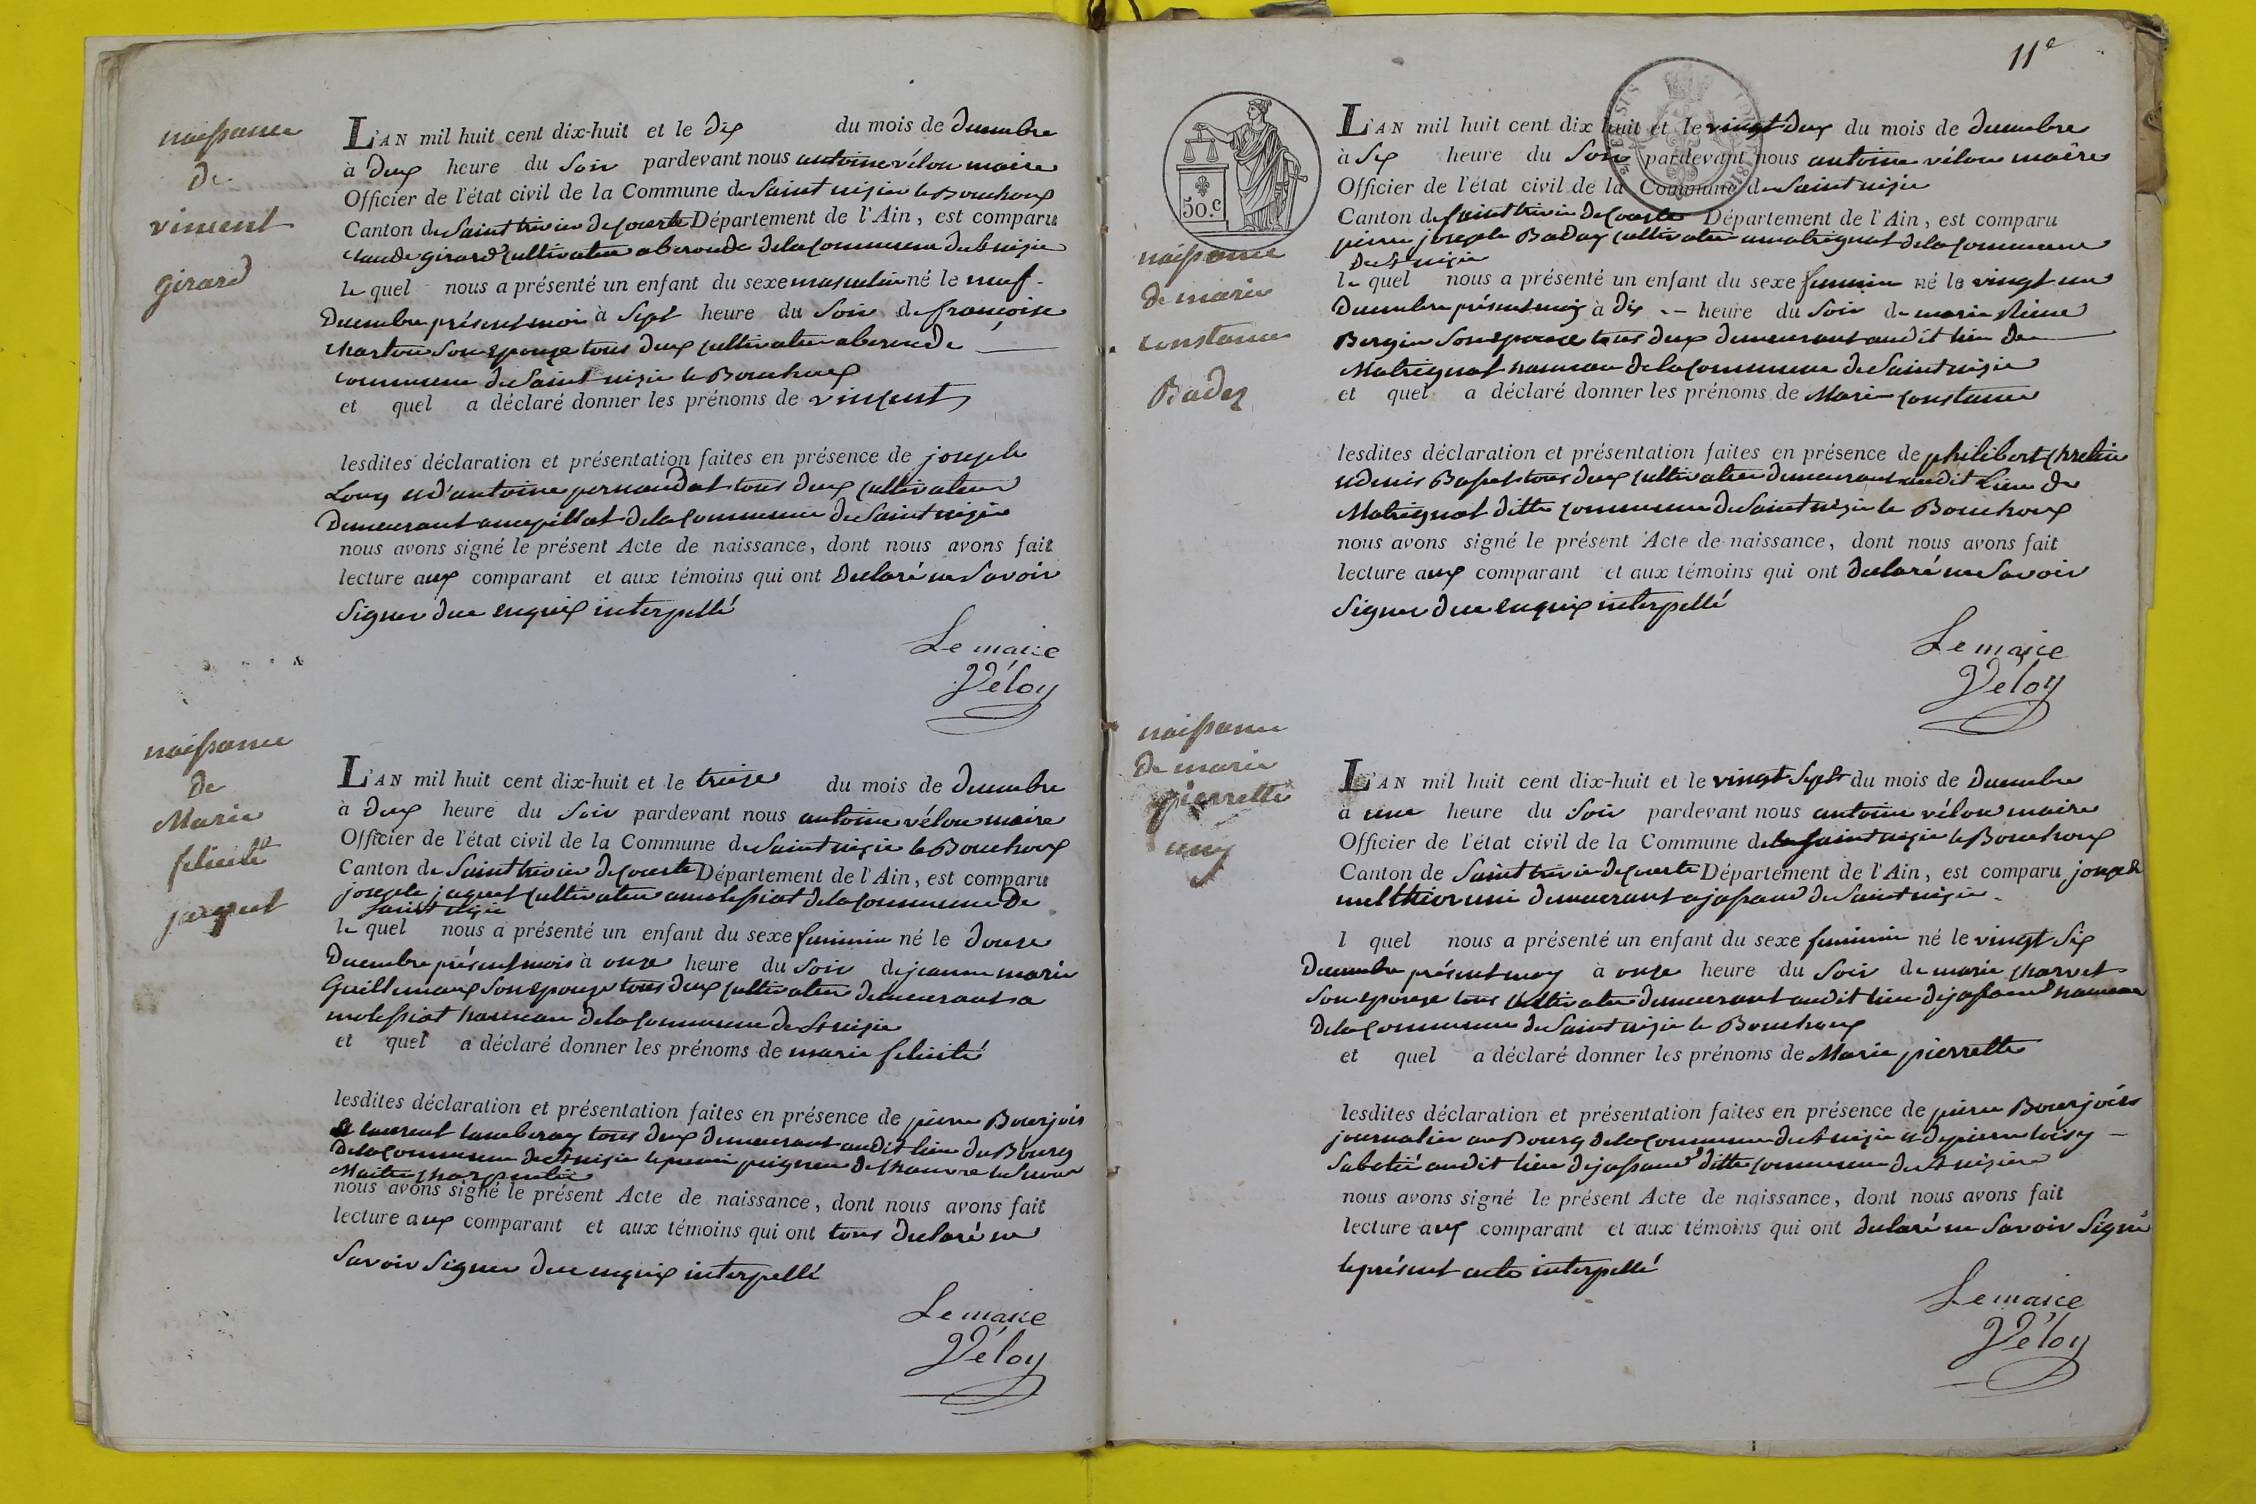 naissance
de
vincent
girard
L'AN mil huit cent dix-huit et le dix du mois de decembre
à deux heure du Soir pardevant nous antoine vélon maire
Officier de l'état civil de la Commune de Saint nizier le Bouchoux
Canton de Saint trivier de Courte Département de l'Ain, est comparu
claude girard Cultivateur a beronde de la Commune de st nizier
le quel nous a présenté un enfant du sexe masculin né le neuf
Decembre présent moi à Sept heure du Soir de francoise
charton Son epouze tous deux cultivateur a beronde
commune de Saint nizier le Bouchoux
et quel a déclaré donner les prénoms de vincent
lesdites déclaration et présentation faites en présence de joseph
Louy et d'antoine pernaudat tous deux cultivateur
Demeurant a de la Commune de Saint nizier
nous avons signé le présent Acte de naissance, dont nous avons fait
lecture aux comparant et aux témoins qui ont Declaré ne Savoir
Signer due enquix interpellé
Le maire
Véloy
naissance
de
Marie
felicité
jacquet
L'AN mil huit cent dix-huit et le treize du mois de decembre
à Deux heure du Soir pardevant nous antoine vélon maire
Officier de l'état civil de la Commune de Saint nizier le Bouchoux
Canton de Saint trivier de Courte Département de l'Ain, est comparu
joseph jaquet Cultivateur a molessiat de la Commune De
Saint nizier
le quel nous a présenté un enfant du sexe feminin né le douze
Decembre présent mois à onze heure du Soir de jeanne marie
Guillemaux Son epouze tous deux Cultivateur demeurant a
molessiat hameau de la Commune de St nizier
et quel a déclaré donner les prénoms de marie felicité
lesdites déclaration et présentation faites en présence de pierre Bourjois
et laurent tous deux demeurant audit lieu du Bourg
De la Commune de St nizier le premier peigneur de chanvre le Second
Maitre charpentier
nous avons signé le présent Acte de naissance, dont nous avons fait
lecture aux comparant et aux témoins qui ont tous declaré ne
Savoir Signer due enquix interpellé
Le maire
Véloy
11e
50.c
naissance
de marie
constance
Badez
L'AN mil huit cent dix huit et le vingt deux du mois de decembre
à Six heure du Soir pardevant nous antoine vélon maêre
Officier de l'état civil de la Commune de Saint nizier
Canton de Saint trivier de Courte Département de l'Ain, est comparu
pierre joseph Baday Cultivateur a matrignat de la Commune
de St nizier
le quel nous a présenté un enfant du sexe feminin né le vingt un
Decembre présent moy à dix heure du Soir de marie Reine
Bergier Son epouze tous deux demeurant audit lieu de
Matrignat hameau de la Commune de Saint nizier
et quel a déclaré donner les prénoms de Marie Constance
lesdites déclaration et présentation faites en présence de philibert chretin
et denis Basset tous deux cultivateur demeurant audit Lieu de
Matrignat ditte commune de Saint nizier le Bouchoux
nous avons signé le présent Acte de naissance, dont nous avons fait
lecture aux comparant et aux témoins qui ont declaré ne Savoir
Signer due enquix interpellé
Le maire
Véloy
naissance
de marie
pierrette
uny
L'AN mil huit cent dix-huit et le vingt Sept du mois de Decembre
à une heure du Soir pardevant nous antoine vélon maire
Officier de l'état civil de la Commune de Saint nizier le Bouchoux
Canton de Saint trivier de Courte Département de l'Ain, est comparu joseph
melthior uni demeurant a jassand de Saint nizier
l quel nous a présenté un enfant du sexe feminin né le vingt Six
Decembre présent moy à onze heure du Soir de marie charvet
Son epouze tous Cultivateur demeurant audit lieu de jassand hameau
De la Commune de Saint nizier le Bouchoux
et quel a déclaré donner les prénoms de Marie pierrette
lesdites déclaration et présentation faites en présence de pierre Bourjois
journalier au Bourg de la Commune de St nizier et de pierre loisy
Sabotié audit lieu de jassand ditte commune de St nizier
nous avons signé le présent Acte de naissance, dont nous avons fait
lecture aux comparant et aux témoins qui ont declaré ne Savoir Signé
le présent acte interpellé
Le maire
Véloy